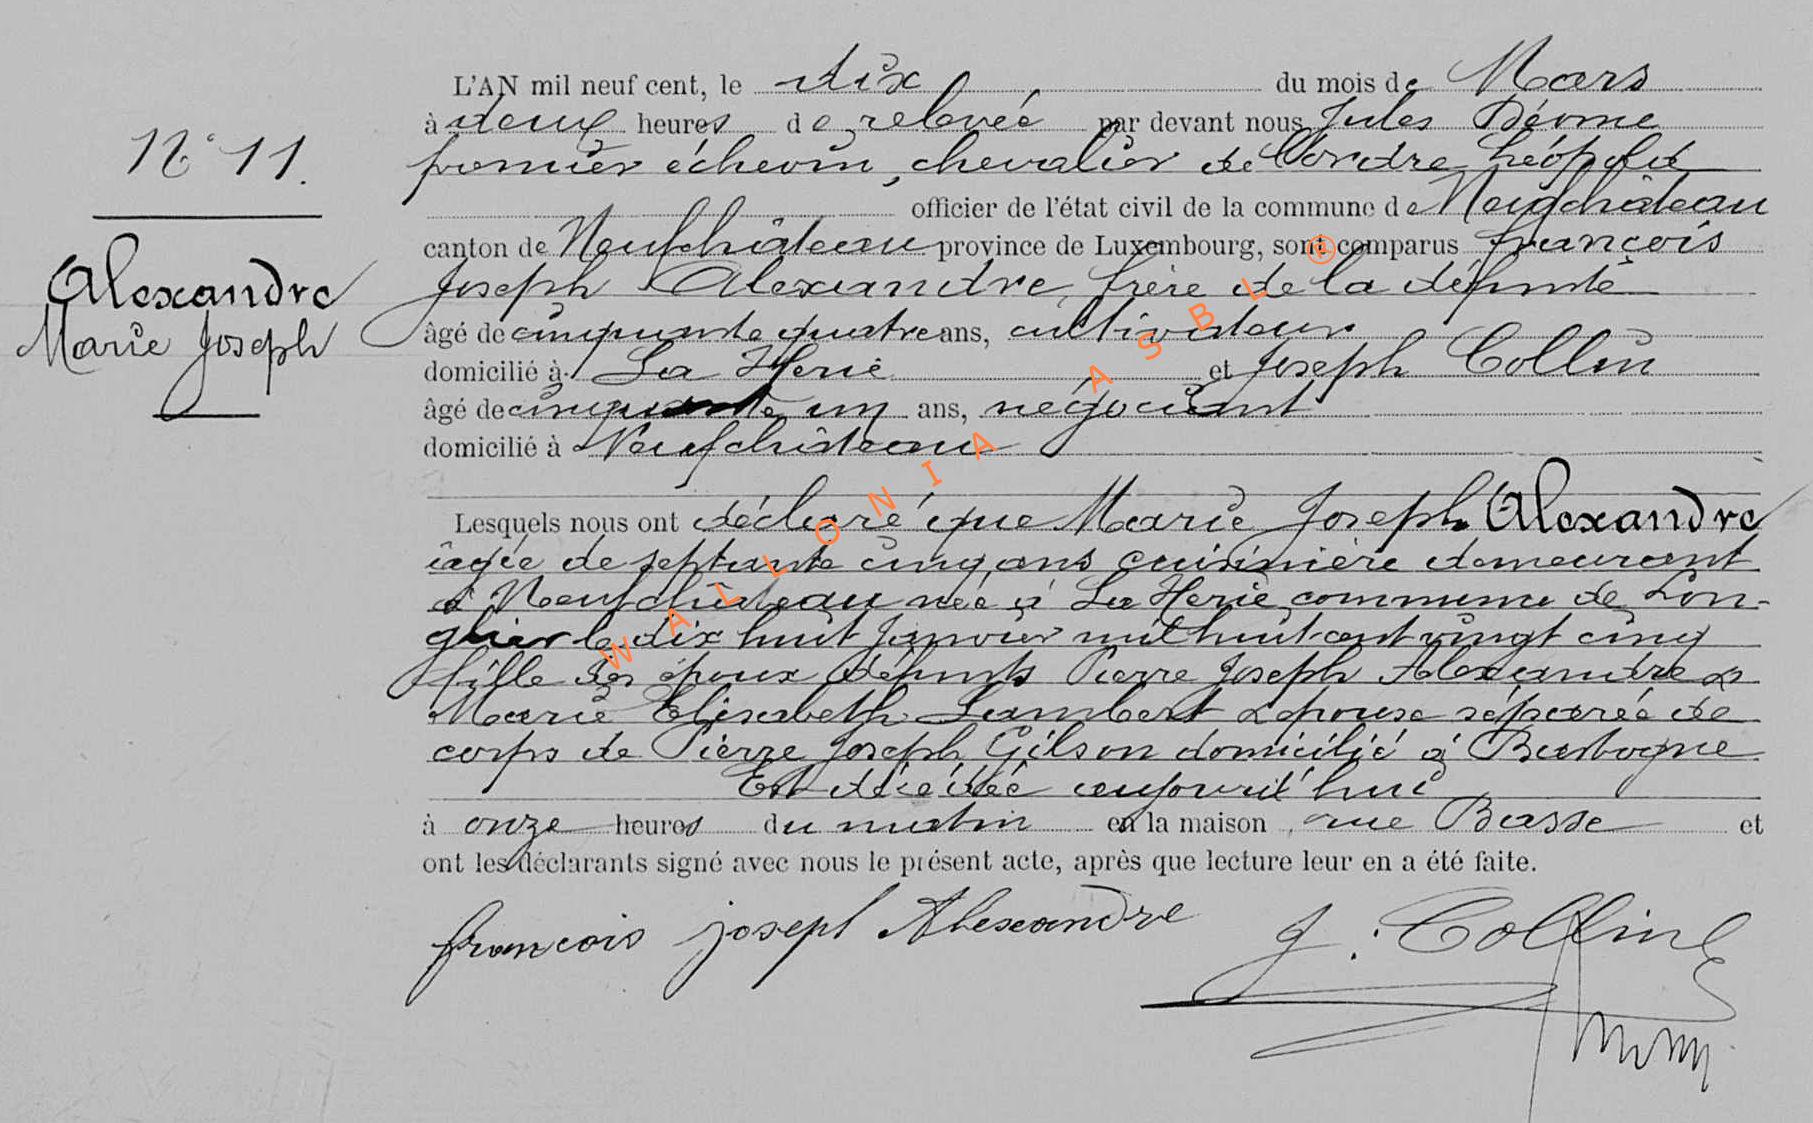 L'AN mil neuf cent, le dix du mois de Mars
à deux heures de relevée par devant nous Jules
premier échevin, chevalier de l'ordre Léopold
officier de l'état civil de la commune de Neufchâteau
canton de Neufchâteau province de Luxembourg, sont comparus françois
Joseph Alexandre, frère de la défunte
âgé de cinquante quatre ans, cultivateur
domicilié à La Herié et Joseph Collin
âgé de cinquante un ans, négociant
domicilié à Neufchâteau
N° 11.
Alexandre
Marie Joseph
Lesquels nous ont déclaré que Marie Joseph Alexandre
âgée de septante cinq ans cuisinière demeurant
à Neufchâteau née à La Herié commune de Lon-
glier le dix huit Janvier mil huit cent vingt cinq
fille des époux défunts Pierre Joseph Alexandre &
Marie Elisabeth Lambert & épouse séparée de
corps de Pierre Joseph Gilson domicilié à Bastogne
Est décédée aujourd'hui
à onze heures du matin en la maison, rue Basse et
ont les déclarants signé avec nous le présent acte, après que lecture leur en a été faite.
françois joseph Alexandre J. Collin
WALLONIA ASBL ®